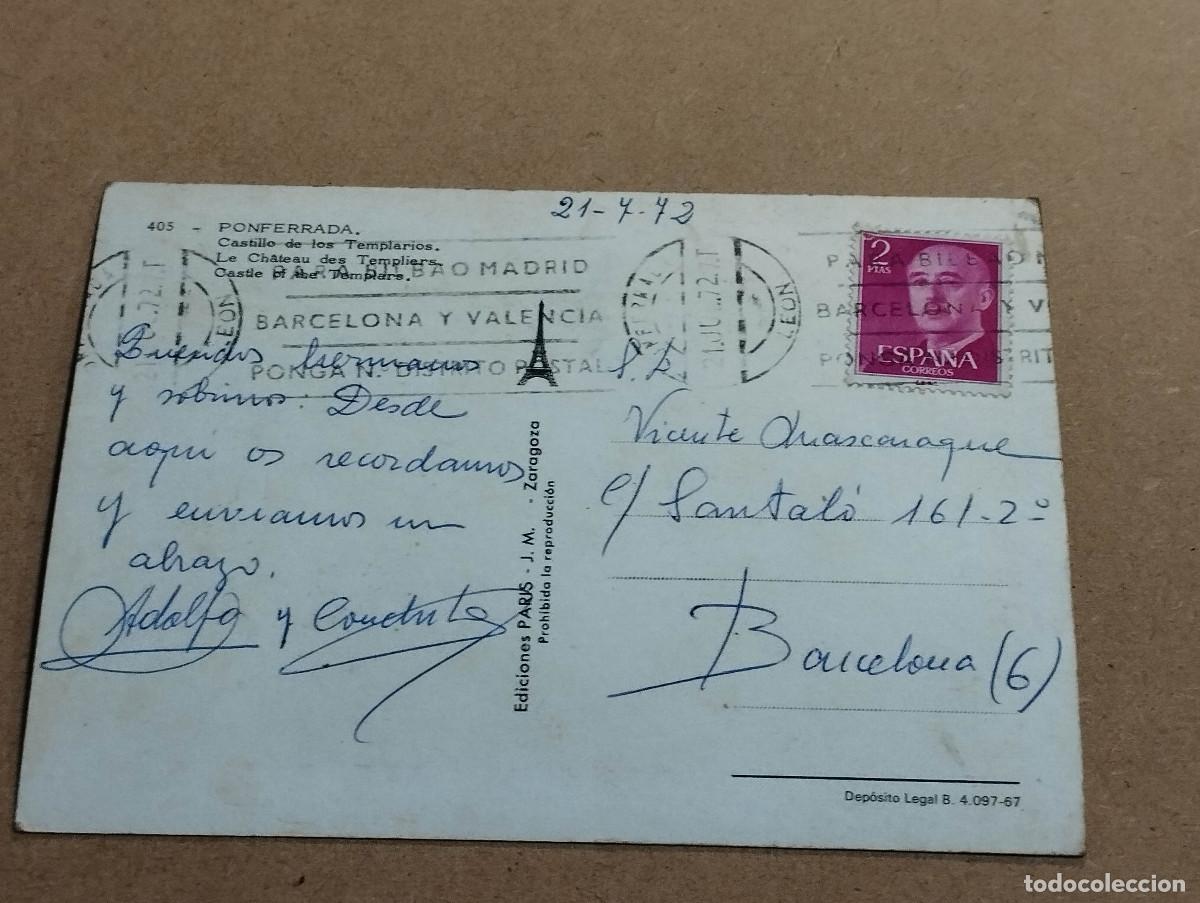 21-7-72
405 - PONFERRADA.
Castillo de los Templarios.
Le Château des Templiers.
Castle of the Templars.
PARA BILBAO MADRID
BARCELONA Y VALENCIA
PONGA N. DISTRITO POSTAL
LEON
21 JUL 72
LEON
PARA BILBAO M
BARCELONA Y V
PONGA N. DISTRIT
2
PTAS
ESPAÑA
CORREOS
Queridos hermanos
y sobrinos: Desde
aqui os recordamos
y enviamos un
abrazo.
Adolfo y Conchita
Ediciones PARIS - J. M. - Zaragoza
Prohibida la reproducción
Vicente
c/ Santaló 161-2º
Barcelona (6)
Depósito Legal B. 4.097-67
todocoleccion